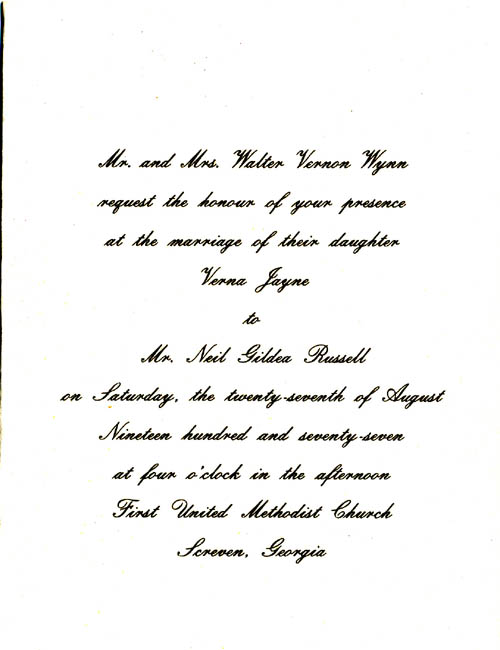 Mr. and Mrs. Walter Vernon Wynn
request the honour of your presence
at the marriage of their daughter
Verna Jayne
to
Mr. Neil Gildea Russell
on Saturday, the twenty-seventh of August
Nineteen hundred and seventy-seven
at four o'clock in the afternoon
First United Methodist Church
Screven, Georgia